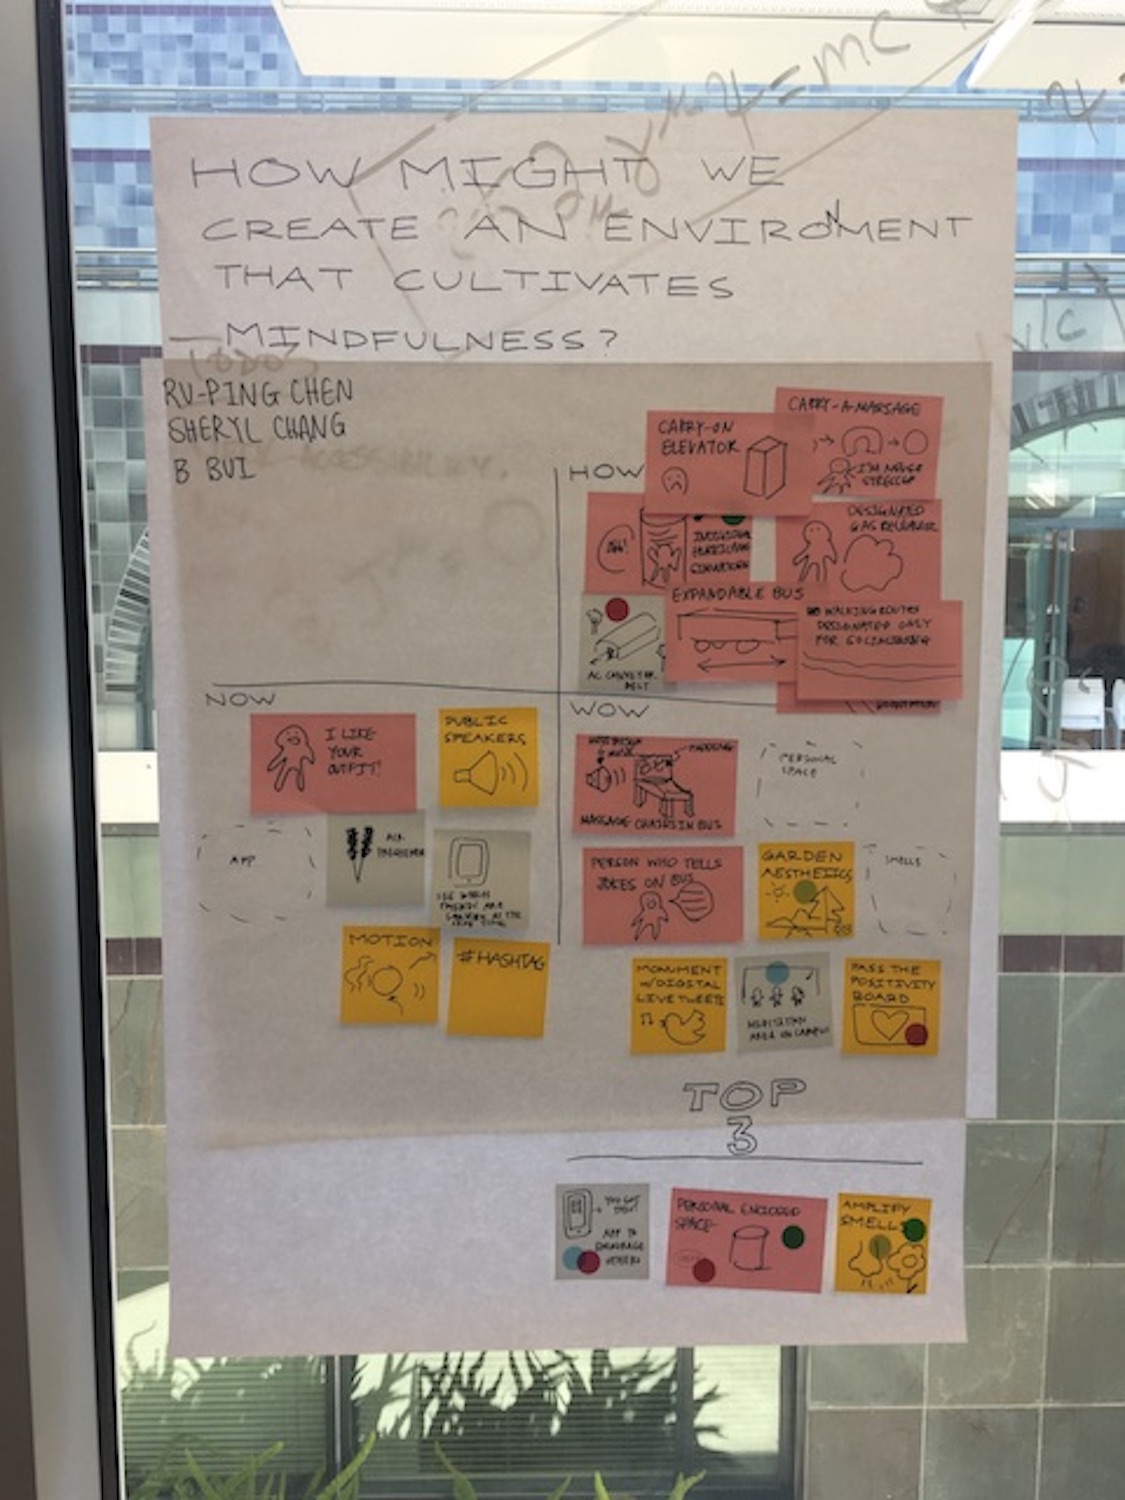 HOW MIGHT WE
CREATE AN ENVIRONMENT
THAT CULTIVATES
MINDFULNESS?
RU-PING CHEN
SHERYL CHANG
B BUI
HOW
CARRY-ON
ELEVATOR
CARRY-A-MASSAGE
I'M NEVER
STRESSED
INDIVIDUAL
HURRICANE
SIMULATORS
DESIGNATED
GAS RELEASER
AC CONVEYOR
BELT
EXPANDABLE BUS
WALKING ROUTES
DESIGNATED ONLY
FOR SOCIALIZING
NOW
I LIKE
YOUR
OUTFIT!
PUBLIC
SPEAKERS
APP
AIR
FRESHENER
SEE WHICH
FRIENDS ARE
WALKING AT THE
SAME TIME
MOTION
#HASHTAG
WOW
MASSAGE CHAIRS IN BUS
PERSONAL
SPACE
PERSON WHO TELLS
JOKES ON BUS
GARDEN
AESTHETICS
SMELLS
MONUMENT
W/DIGITAL
LIVE TWEETS
MEDITATION
AREA ON CAMPUS
PASS THE
POSITIVITY
BOARD
TOP
3
YOU GOT
THIS!
APP TO
ENCOURAGE
OTHERS
PERSONAL ENCLOSED
SPACE
AMPLIFY
SMELLS